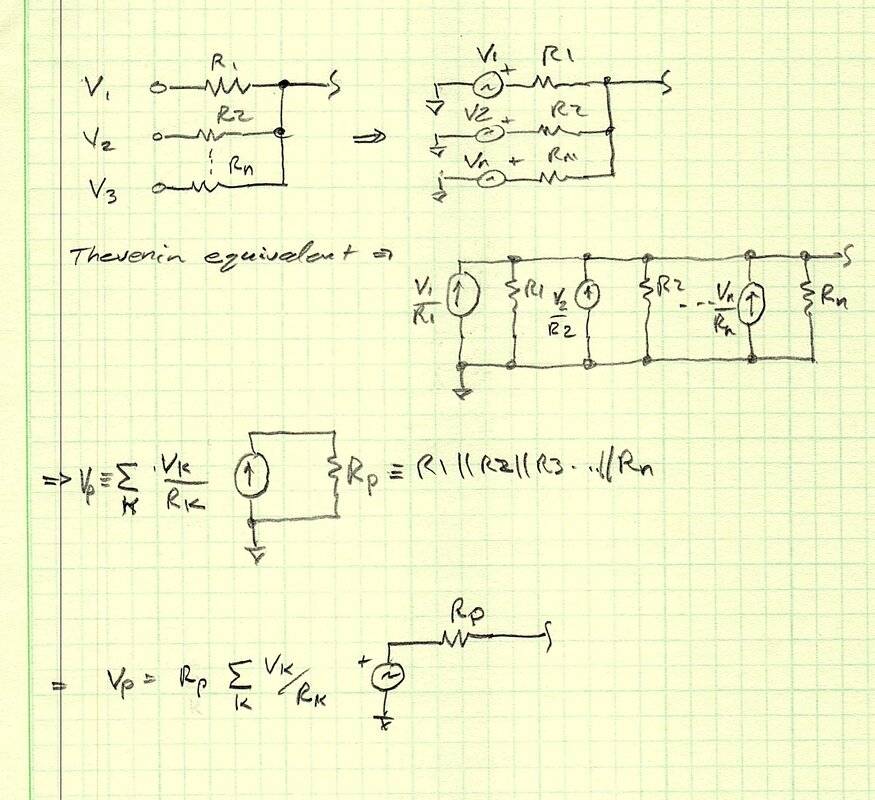 V1 R1
V2 R2
V3 Rn
⇒
V1 + R1
V2 + R2
Vn + Rn
Thevenin equivalent ⇒
V1/R1 R1 V2/R2 R2 --- Vn/Rn Rn
⇒ Vp ≡ ∑K VK/RK Rp ≡ R1 || R2 || R3 ... || Rn
Rp
= Vp = Rp ∑K VK/RK +